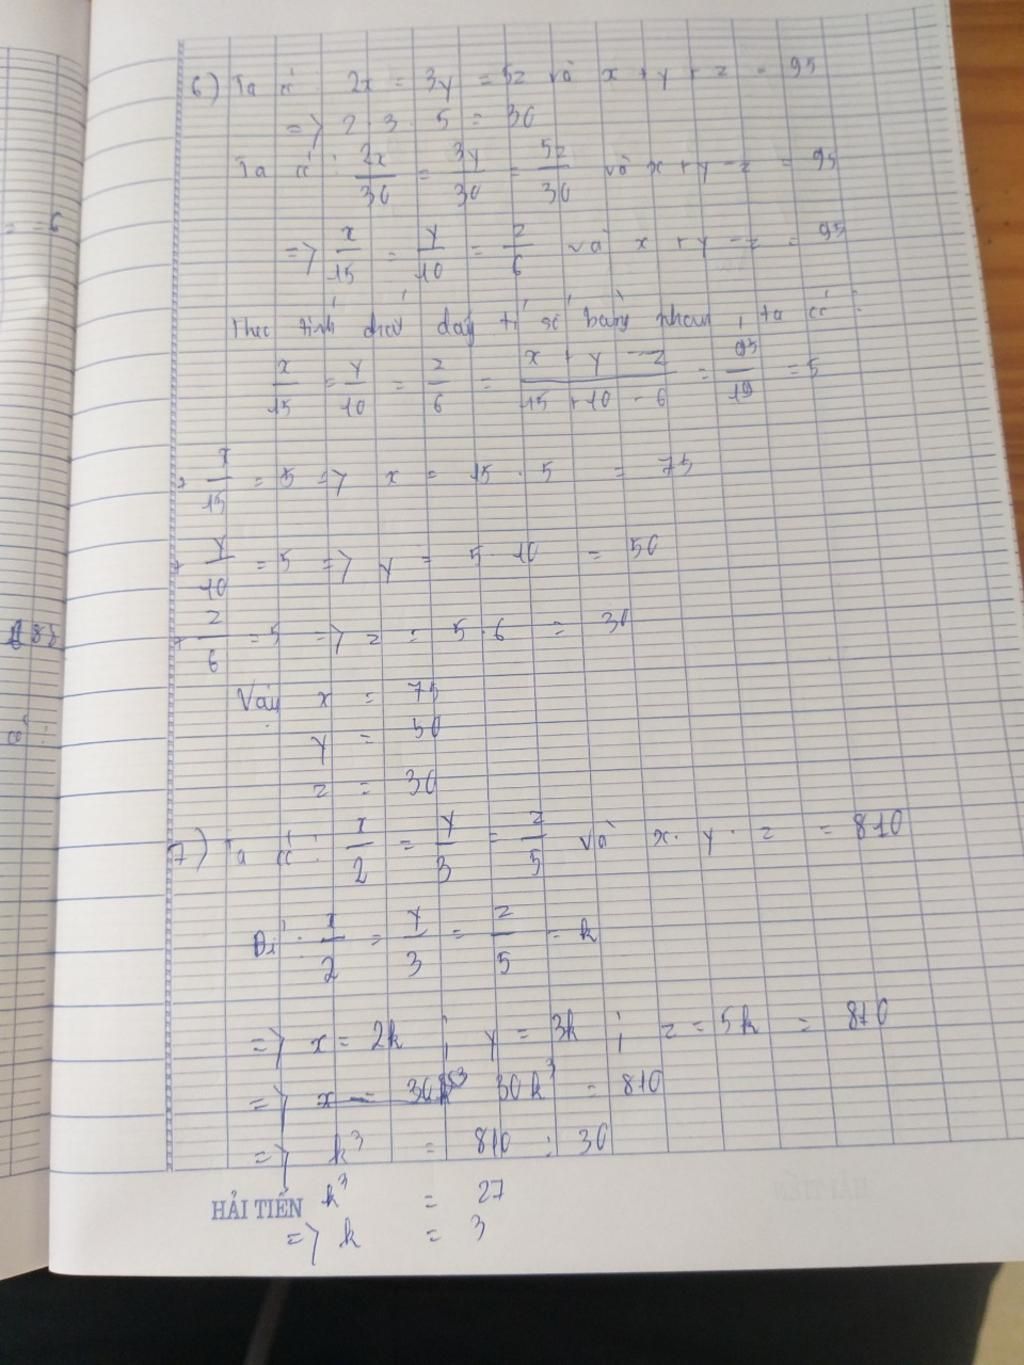 6) Ta có 2x = 3y = 5z và x + y - z = 95
=> 2 · 3 · 5 = 30
Ta có : 2x/30 = 3y/30 = 5z/30 và x + y - z = 95
=> x/15 = y/10 = z/6 và x + y - z = 95
Theo tính chất dãy tỉ số bằng nhau, ta có :
x/15 = y/10 = z/6 = x + y - z/15 + 10 - 6 = 95/19 = 5
+ x/15 = 5 => x = 15 · 5 = 75
+ y/10 = 5 => y = 5 · 10 = 50
+ z/6 = 5 => z = 5 · 6 = 30
Vậy x = 75
y = 50
z = 30
7) Ta có : x/2 = y/3 = z/5 và x · y · z = 810
: x/2 = y/3 = z/5 = k
=> x = 2k ; y = 3k ; z = 5k = 810
=> 30k³ = 810
=> k³ = 810 : 30
HẢI TIẾN k³ = 27
=> k = 3
= -6
có :